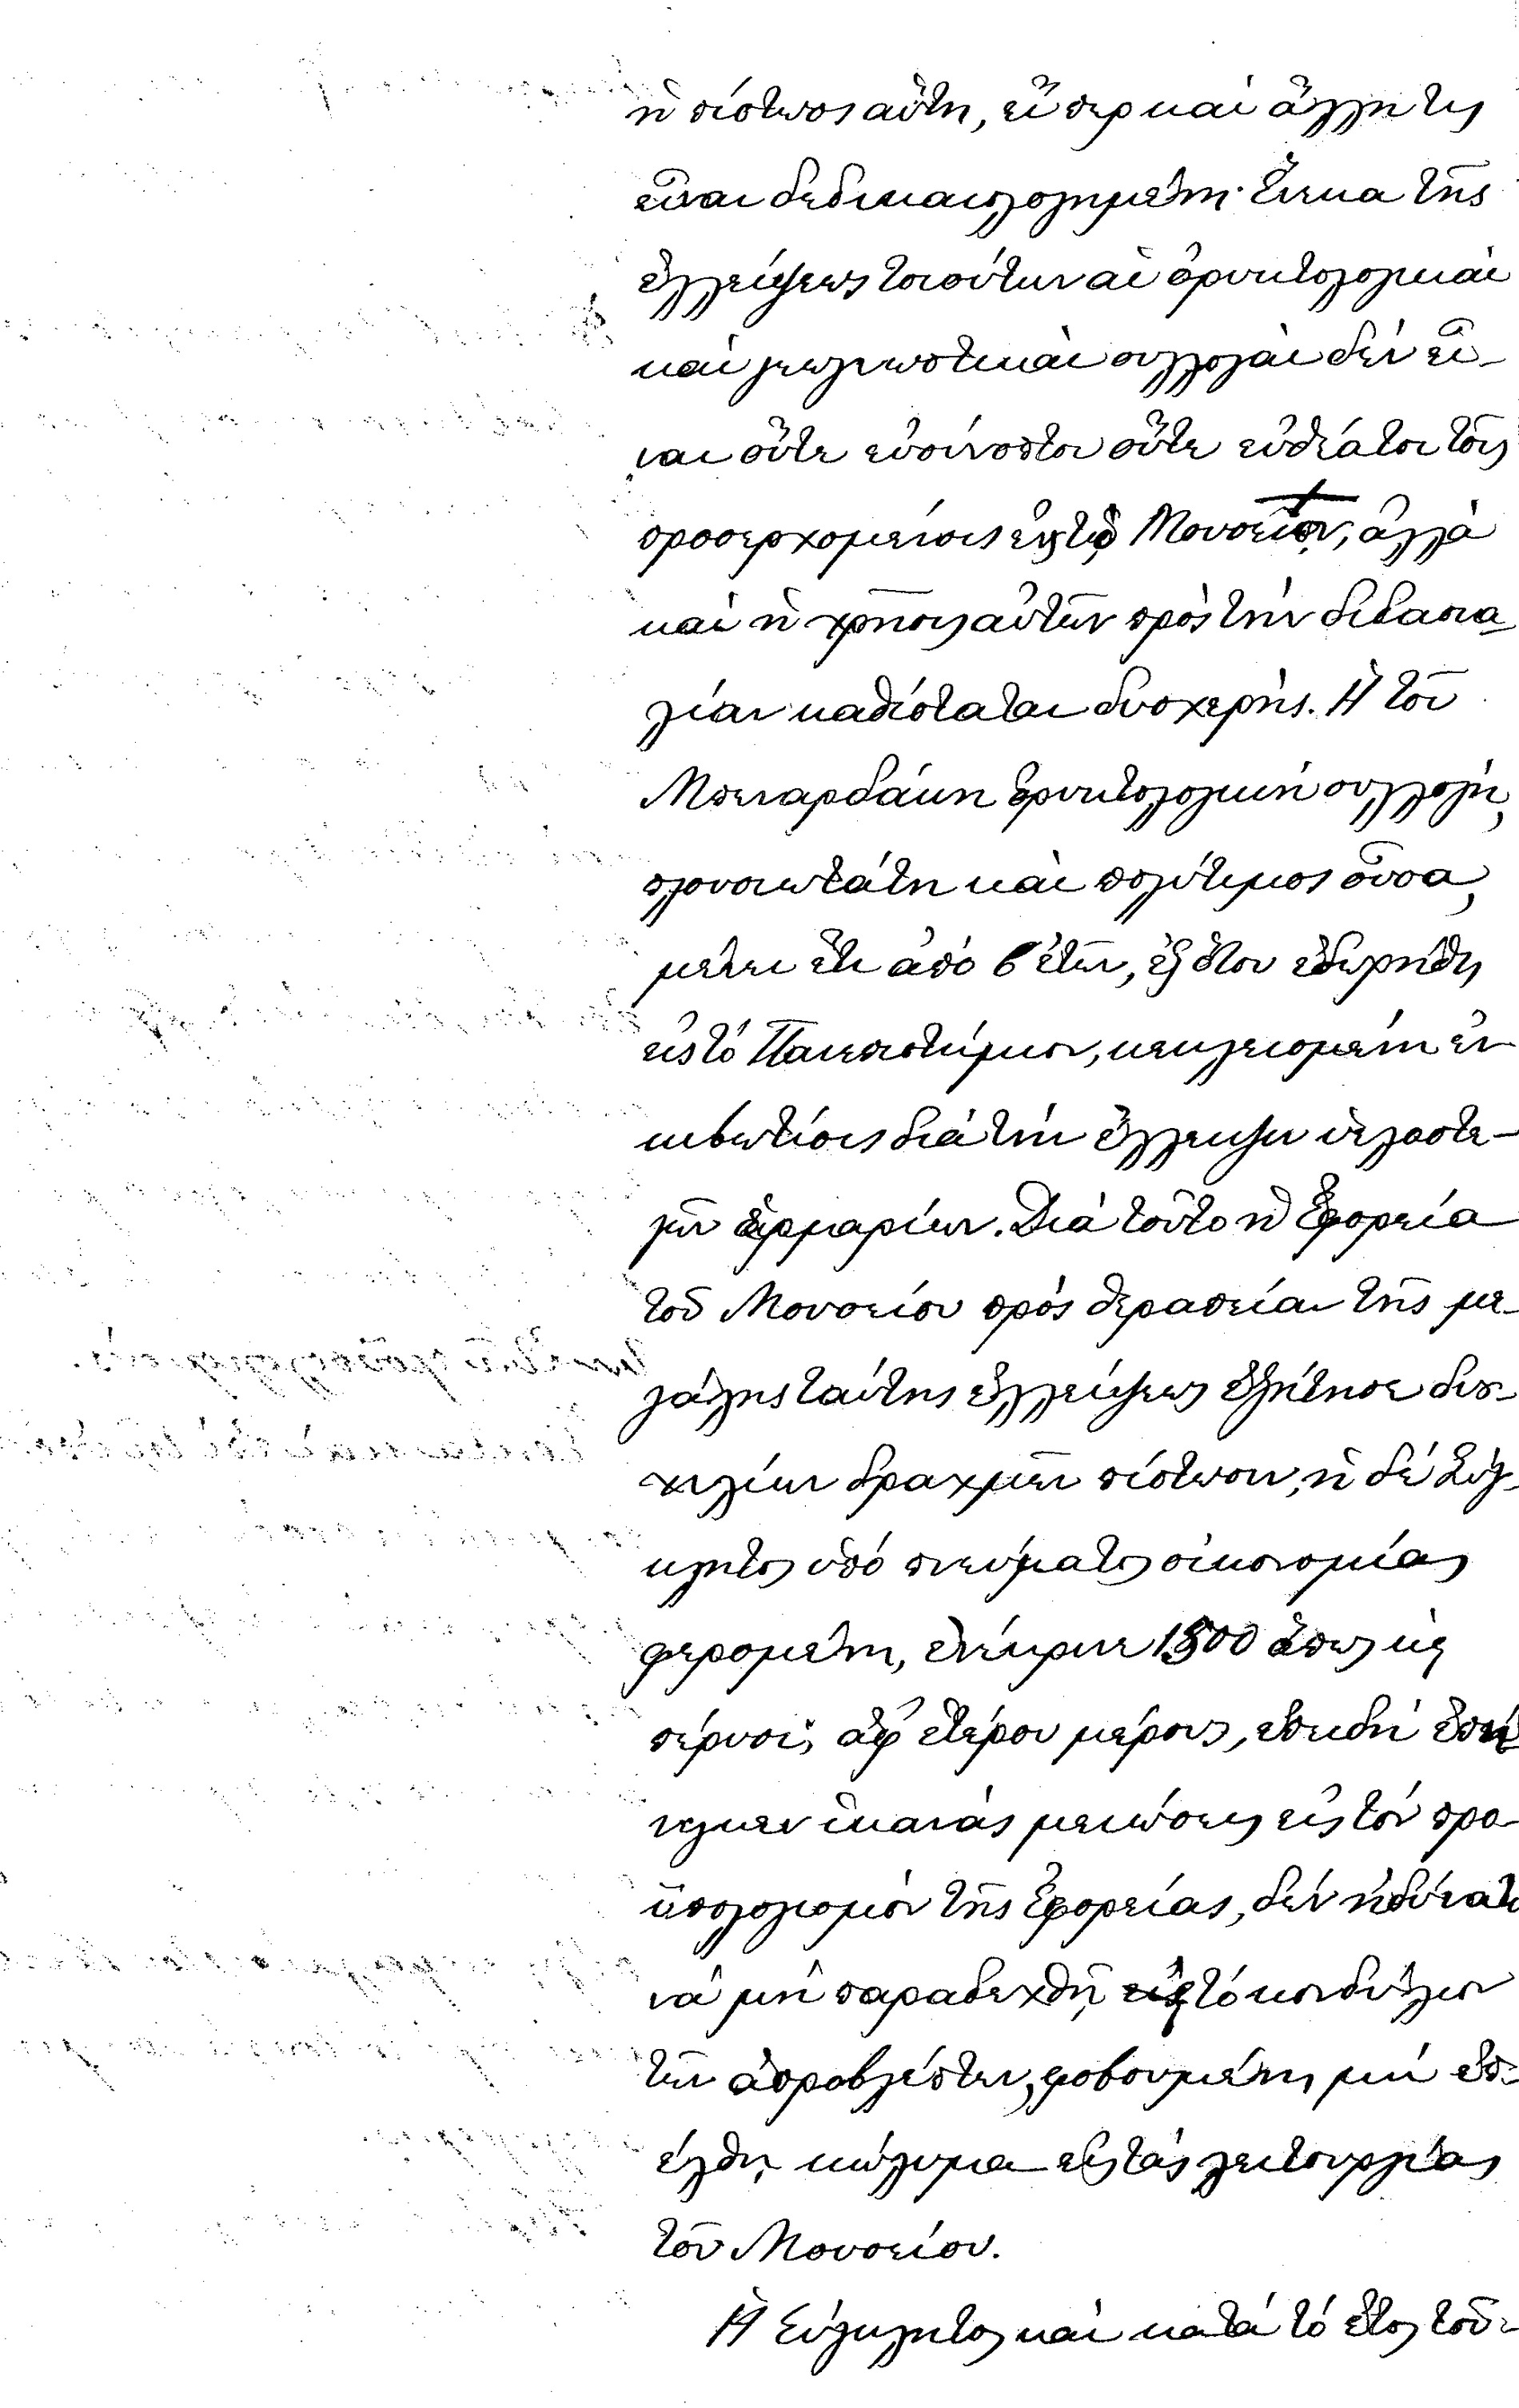 ἡ πίστωσις αὕτη, εἴπερ καὶ ἄλλη τις
εἶναι δεδικαιολογημένη· ἕνεκα τῆς
ἐλλείψεως τοιούτων αἱ ὀρυκτολογικαὶ
καὶ γεωγνωστικαὶ συλλογαὶ δὲν εἶ-
ναι οὔτε εὐσύνοπτοι οὔτε εὐθέατοι τοῖς
προσερχομένοις εἰς τὸ Μουσεῖον, ἀλλὰ
καὶ ἡ χρῆσις αὐτῶν πρὸς τὴν διδασκα-
λίαν καθίσταται δυσχερής. Ἡ τοῦ
Μπεναρδάκη ὀρυκτολογικὴ συλλογὴ,
πλουσιωτάτη καὶ πολύτιμος οὖσα,
μένει ἔτι ἀπὸ 6 ἐτῶν, ἐξ ὅτου ἐδωρήθη
εἰς τὸ Πανεπιστήμιον, κεκλεισμένη ἐν
κιβωτίοις διὰ τὴν ἔλλειψιν ὑελοστε-
γῶν ἑρμαρίων. Διὰ τοῦτο ἡ Ἐφορεία
τοῦ Μουσείου πρὸς θεραπείαν τῆς με-
γάλης ταύτης ἐλλείψεως ἐζήτησε δισ-
χιλίων δραχμῶν πίστωσιν, ἡ δὲ Σύγ-
κλητος ὑπὸ πνεύματος οἰκονομίας
φερομένη, ἐνέκρινε 1500 ὅπως καὶ
πέρυσι, ἀφ' ἑτέρου μέρους, ἐπειδὴ ἐπή-
νεγκεν ἱκανὰς μειώσεις εἰς τὸν προ-
ϋπολογισμὸν τῆς Ἐφορείας, δὲν ἠδύνατο
νὰ μὴ παραδεχθῇ τὸ κονδύλιον
τῶν ἀπροβλέπτων, φοβουμένη μὴ ἐπ-
έλθῃ κώλυμα εἰς τὰς λειτουργίας
τοῦ Μουσείου.
Ἡ Σύγκλητος καὶ κατὰ τὸ ἔτος τοῦ-